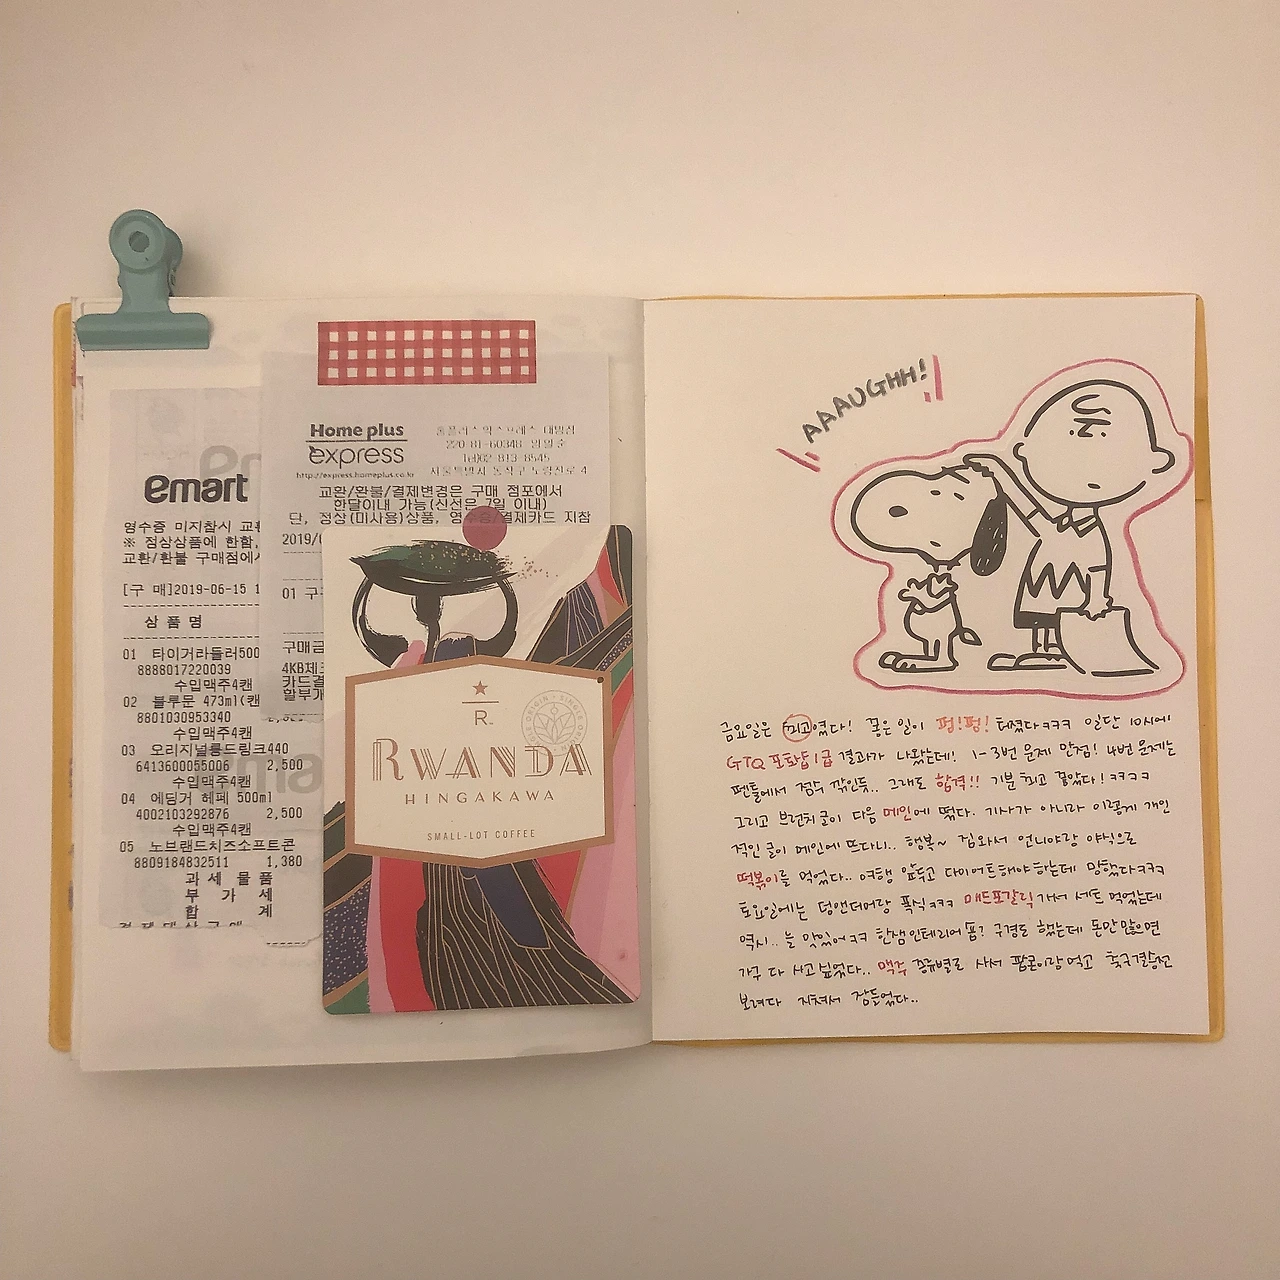 emart
영수증 미지참시 교환
※ 정상상품에 한함,
교환/환불 구매점에서
[구 매]2019-06-15 1
상 품 명
01 타이거라들러500
8888017220039
수입맥주4캔
02 블루문 473ml(캔
8801030953340
수입맥주4캔
03 오리지널롱드링크440
6413600055006 2,500
수입맥주4캔
04 에딩거 헤페 500ml
4002103292876 2,500
수입맥주4캔
05 노브랜드치즈소프트콘
8809184832511 1,380
과 세 물 품
부 가 세
합 계
Home plus
express
http://express.homeplus.co.kr
홈플러스익스프레스 대방점
220-81-60348
Tel)02-813-8545
서울특별시 동작구 노량진로 4
교환/환불/결제변경은 구매 점포에서
한달이내 가능(신선은 7일 이내)
단, 정상(미사용)상품, 영수증/결제카드 지참
2019/0
01 구
구매금
4KB체크
카드결
할부개
R
RWANDA
HINGAKAWA
SMALL-LOT COFFEE
AAAUGHH!
금요일은 최고였다! 좋은 일이 펑!펑! 터졌다ㅋㅋㅋ 일단 10시에
GTQ 포토샵1급 결과가 나왔는데! 1-3번 문제 만점! 4번 문제는
펜툴에서 점수 깎인듯.. 그래도 합격!! 기분 최고 좋았다! ㅋㅋㅋㅋ
그리고 브런치 글이 다음 메인에 떴다. 기사가 아니라 이렇게 개인
적인 글이 메인에 뜨다니.. 행복~ 집와서 언니야랑 야식으로
떡볶이를 먹었다.. 여행 앞두고 다이어트해야 하는데 망했다ㅋㅋㅋ
토요일에는 덩앤더머랑 폭식ㅋㅋㅋ 매드포갈릭 가서 세트 먹었는데
역시.. 늘 맛있어ㅋㅋ 한샘인테리어 숍? 구경도 했는데 돈만 많으면
가구 다 사고 싶었다.. 맥주 종류별로 사서 팝콘이랑 먹고 축구결승전
보려다 지쳐서 잠들었다..